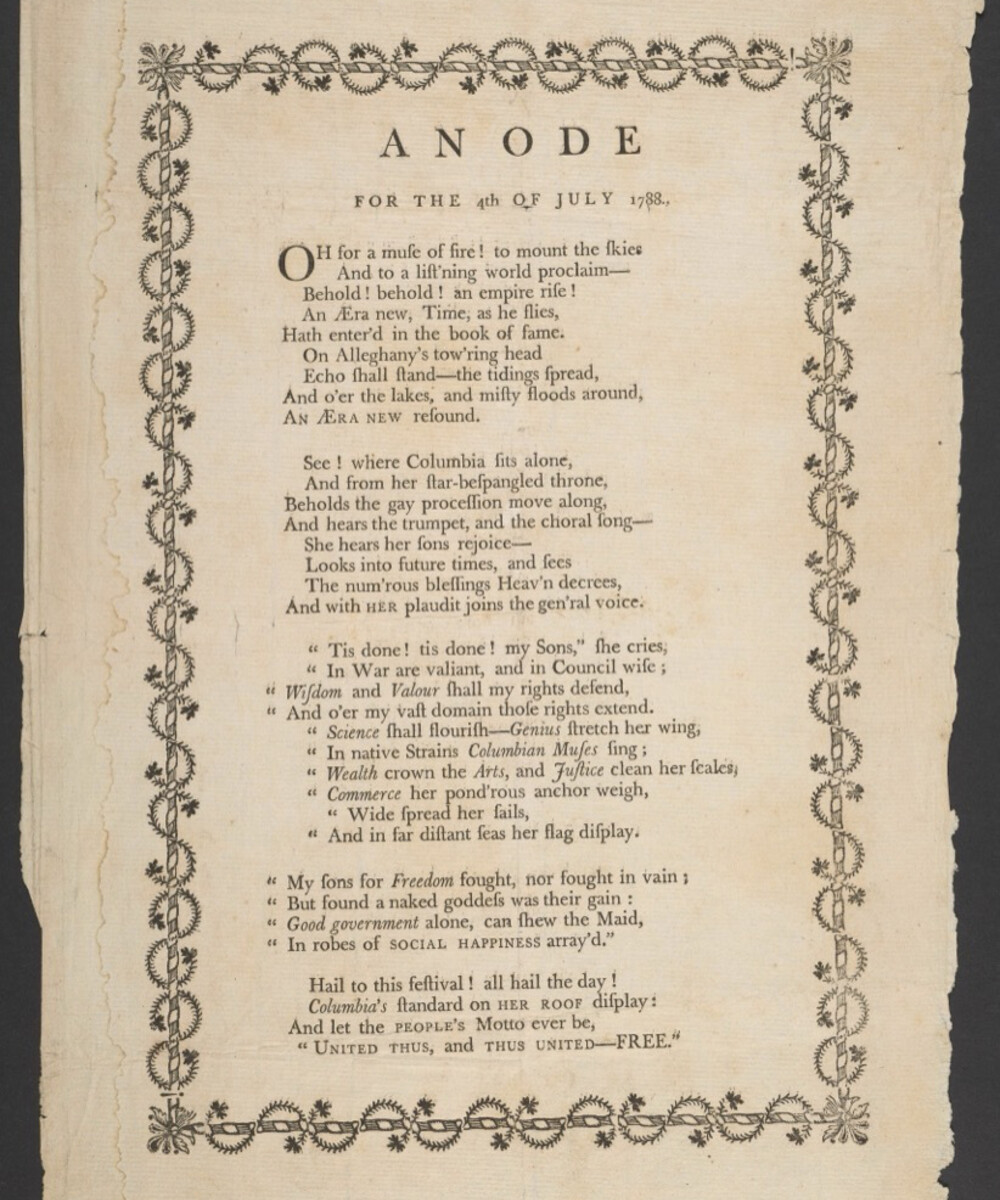 AN ODE
FOR THE 4th OF JULY 1788.
OH for a muſe of fire! to mount the ſkies
And to a liſt'ning world proclaim—
Behold! behold! an empire riſe!
An Æra new, Time, as he flies,
Hath enter'd in the book of fame.
On Alleghany's tow'ring head
Echo ſhall ſtand—the tidings ſpread,
And o'er the lakes, and miſty floods around,
AN ÆRA NEW reſound.
See! where Columbia ſits alone,
And from her ſtar-beſpangled throne,
Beholds the gay proceſſion move along,
And hears the trumpet, and the choral ſong—
She hears her ſons rejoice—
Looks into future times, and ſees
The num'rous bleſſings Heav'n decrees,
And with HER plaudit joins the gen'ral voice.
“ Tis done! tis done! my Sons,” ſhe cries,
“ In War are valiant, and in Council wiſe;
“ Wiſdom and Valour ſhall my rights defend,
“ And o'er my vaſt domain thoſe rights extend.
“ Science ſhall flouriſh—Genius ſtretch her wing,
“ In native Strains Columbian Muſes ſing;
“ Wealth crown the Arts, and Juſtice clean her ſcales,
“ Commerce her pond'rous anchor weigh,
“ Wide ſpread her ſails,
“ And in far diſtant ſeas her flag diſplay.
“ My ſons for Freedom fought, nor fought in vain;
“ But found a naked goddeſs was their gain:
“ Good government alone, can ſhew the Maid,
“ In robes of SOCIAL HAPPINESS array'd.”
Hail to this feſtival! all hail the day!
Columbia's ſtandard on HER ROOF diſplay:
And let the PEOPLE'S Motto ever be,
“ UNITED THUS, and THUS UNITED—FREE.”